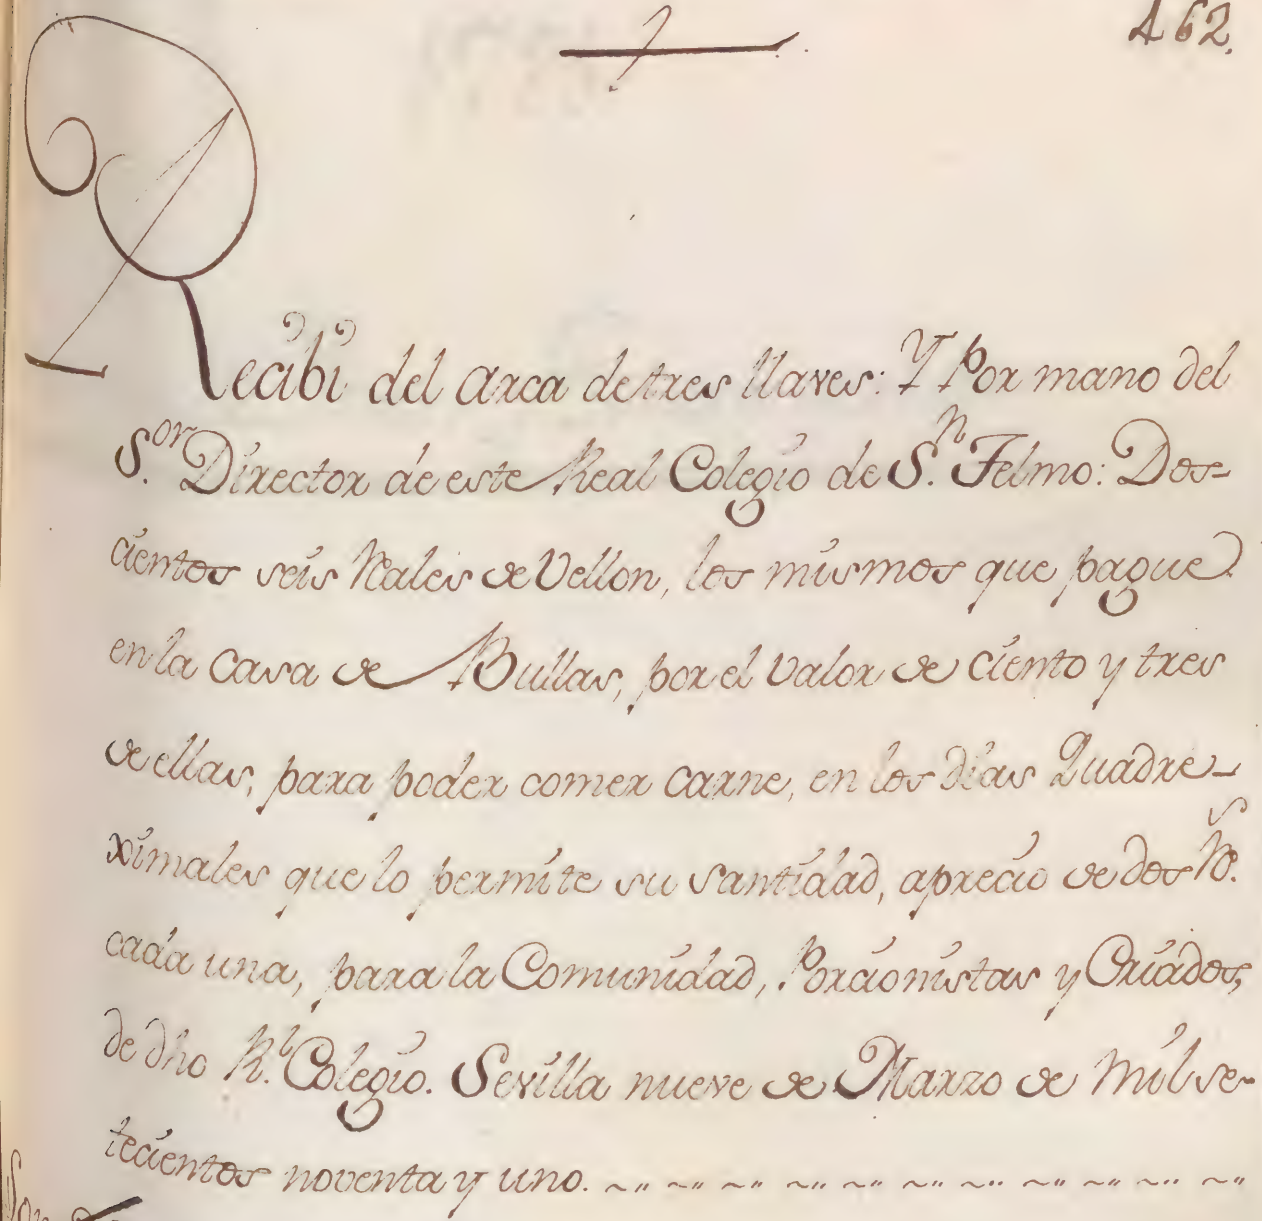 462.
Recibi del arca de tres llaves: Y Por mano del
S.or Director de este Real Colegio de S.n Telmo: Dos-
cientos seis Reales de Vellon, los mismos que pague
en la casa de Bullas, por el valor de ciento y tres
de ellas, para poder comer carne, en los dias Quadre-
ximales que lo permite su santidad, aprecio de dos R.s
cada una, para la Comunidad, Porcionistas y Criados,
de dho R.l Colegio. Sevilla nueve de Marzo de mil se-
tecientos noventa y uno.
Son